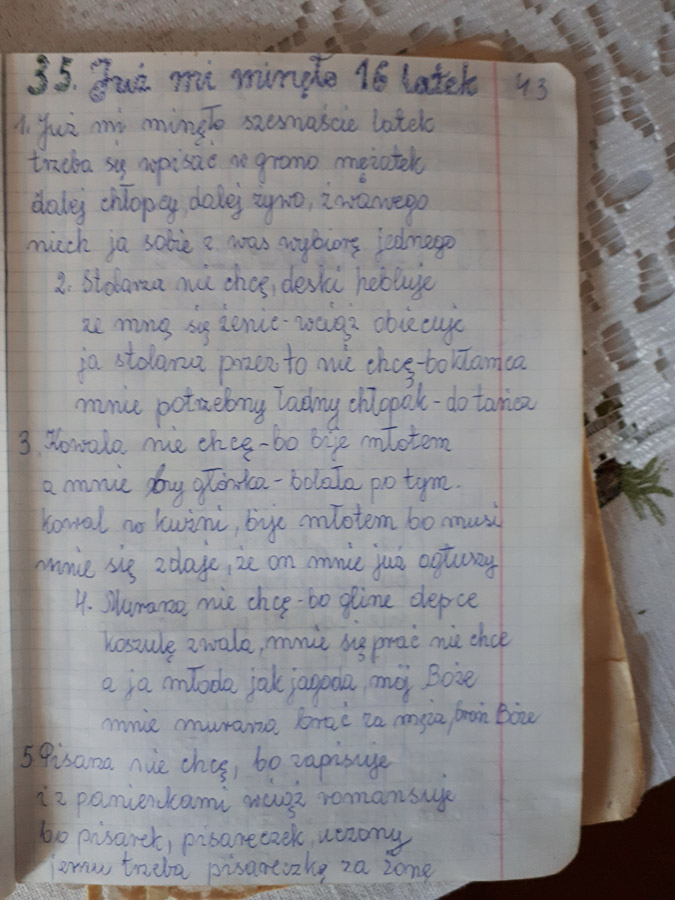 35. Już mi minęło 16 latek 43
1. Już mi minęło szesnaście latek
trzeba się wpisać w grono mężatek
dalej chłopcy, dalej żywo, żwawego
niech ja sobie z was wybiorę jednego
2. Stolarza nie chcę, deski hebluje
ze mną się żenić - wciąż obiecuje
ja stolarza przez to nie chcę - bo kłamca
mnie potrzebny ładny chłopak - do tańca
3. Kowala nie chcę - bo bije młotem
a mnie by główka - bolała po tym.
kowal w kuźni, bije młotem bo musi
mnie się zdaje, że on mnie już ogłuszy
4. Murarza nie chcę - bo glinę depce
koszulę zwala, mnie się prać nie chce
a ja młoda jak jagoda, mój Boże
mnie murarza brać za męża, broń Boże
5. Pisarza nie chcę, bo zapisuje
i z panienkami wciąż romansuje
bo pisarek, pisareczek, uczony
jemu trzeba pisareczkę za żonę